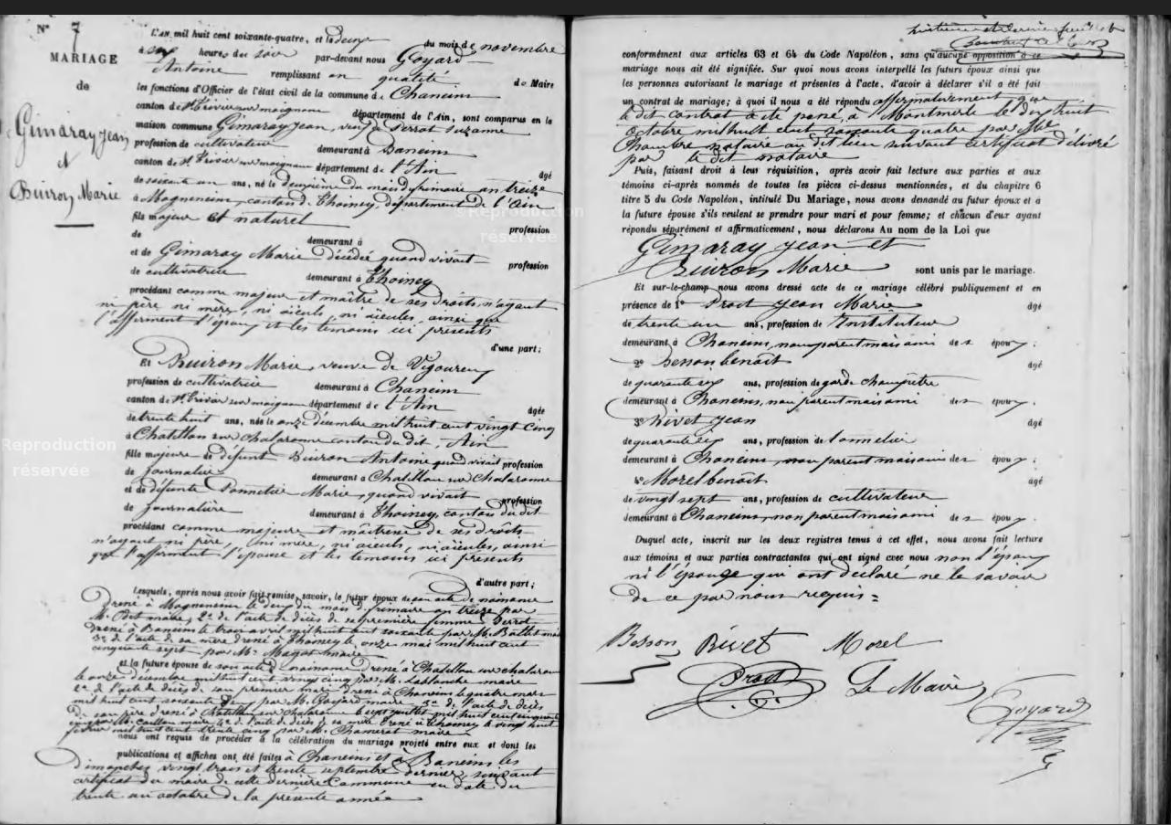 N° 7
MARIAGE
de
Gimaray Jean
et
Buiron Marie
L'AN mil huit cent soixante-quatre, et le deux du mois de novembre
à six heures du soir par-devant nous Goyard
Antoine remplissant en qualité de Maire
les fonctions d'Officier de l'état civil de la commune de Chaneins
canton de St Trivier sur moignans département de l'Ain, sont comparus en la
maison commune Gimaray Jean, veuf de Perrot Suzanne
profession de cultivateur demeurant à Baneins
canton de St Trivier sur moignans département de l'Ain âgé
de soixante un ans, né le deuxième du mois de frimaire an treize
à Magneneins, canton de Thoissey, département de l'Ain
fils majeur et naturel
de profession
demeurant à
et de Gimaray Marie décédée quand vivait profession
de cultivatrice demeurant à Thoissey
procédant comme majeur et maître de ses droits, n'ayant
ni père, ni mère, ni aïeuls, ni aïeules, ainsi que
l'afferment l'époux et les temoins ici présents
d'une part;
Et Buiron Marie, veuve de Vigoureux
profession de cultivatrice demeurant à Chaneins
canton de St Trivier sur moignans département de l'Ain âgée
de trente huit ans, née le onze décembre mil huit cent vingt cinq
à Chatillon sur chalaronne canton du dit, Ain
fille majeure de défunt Buiron Antoine quand vivait profession
de journalier demeurant à Chatillon sur Chalaronne
et de défunte Donnetier Marie, quand vivait profession
de journalière demeurant à Thoissey, canton du dit
procédant comme majeure et maîtresse de ses droits
n'ayant ni père, ni mère, ni aïeuls, ni aïeules, ainsi
que l'afferment l'épouse et les temoins ici présents
d'autre part;
Lesquels, après nous avoir fait remise, savoir, le futur époux de son acte de naissance
dressé à Magneneins le deux du mois de frimaire an treize par
M. maire, 2° de l'acte de décès de sa première femme Perrot
dressé à Baneins le trois avril mil huit cent soixante par M. Ballet maire
3° de l'acte de sa mère dressé à Thoissey le onze mai mil huit cent
cinquante sept par Mr Magat maire
et la future épouse de son acte de naissance dressé à Chatillon sur chalaronne
le onze décembre mil huit cent vingt cinq par M. Leblanche maire
2° de l'acte de décès de son premier mari dressé à Chaneins le quatre mars
mil huit cent soixante par M. Goyard maire 3° de l'acte de décès
de son père dressé à Chatillon sur chalaronne mil huit cent cinquante
par M. maire 4° de l'acte de décès de sa mère dressé à Thoissey le vingt huit
février mil huit cent trente cinq par M. Chamerat maire
nous ont requis de procéder à la célébration du mariage projeté entre eux et dont les
publications et affiches ont été faites à Chaneins et à Baneins les
Dimanches vingt trois et trente septembre dernier suivant
certificat du maire de cette dernière Commune en date du
trente un octobre de la présente année
conformément aux articles 63 et 64 du Code Napoléon, sans qu'aucune opposition à ce
mariage nous ait été signifiée. Sur quoi nous avons interpellé les futurs époux ainsi que
les personnes autorisant le mariage et présentes à l'acte, d'avoir à déclarer s'il a été fait
un contrat de mariage; à quoi il nous a été répondu affirmativement que
le dit contrat a été passé à Montmerle le dix huit
octobre mil huit cent soixante quatre par Me
Chambre notaire au dit lieu suivant certificat délivré
par le dit notaire
Puis, faisant droit à leur réquisition, après avoir fait lecture aux parties et aux
témoins ci-après nommés de toutes les pièces ci-dessus mentionnées, et du chapitre 6
titre 5 du Code Napoléon, intitulé Du Mariage, nous avons demandé au futur époux et à
la future épouse s'ils veulent se prendre pour mari et pour femme; et chacun d'eux ayant
répondu séparément et affirmativement, nous déclarons Au nom de la Loi que
Gimaray Jean et
Buiron Marie sont unis par le mariage.
Et sur-le-champ nous avons dressé acte de ce mariage célébré publiquement et en
présence de 1° Prost Jean Marie âgé
de trente un ans, profession de Instituteur
demeurant à Chaneins, non parent mais ami des époux;
2° Besson benoît âgé
de quarante six ans, profession de garde champêtre
demeurant à Chaneins, non parent mais ami des époux.
3° Rivet Jean âgé
de quarante six ans, profession de tonnelier
demeurant à Chaneins, non parent mais ami des époux;
4° Morel benoît âgé
de vingt sept ans, profession de cultivateur
demeurant à Chaneins, non parent mais ami des époux.
Duquel acte, inscrit sur les deux registres tenus à cet effet, nous avons fait lecture
aux témoins et aux parties contractantes qui ont signé avec nous non l'époux
ni l'épouse qui ont déclaré ne le savoir
de ce par nous requis =
Besson Rivet Morel
Prost Le Maire
Goyard
Reproduction
réservée